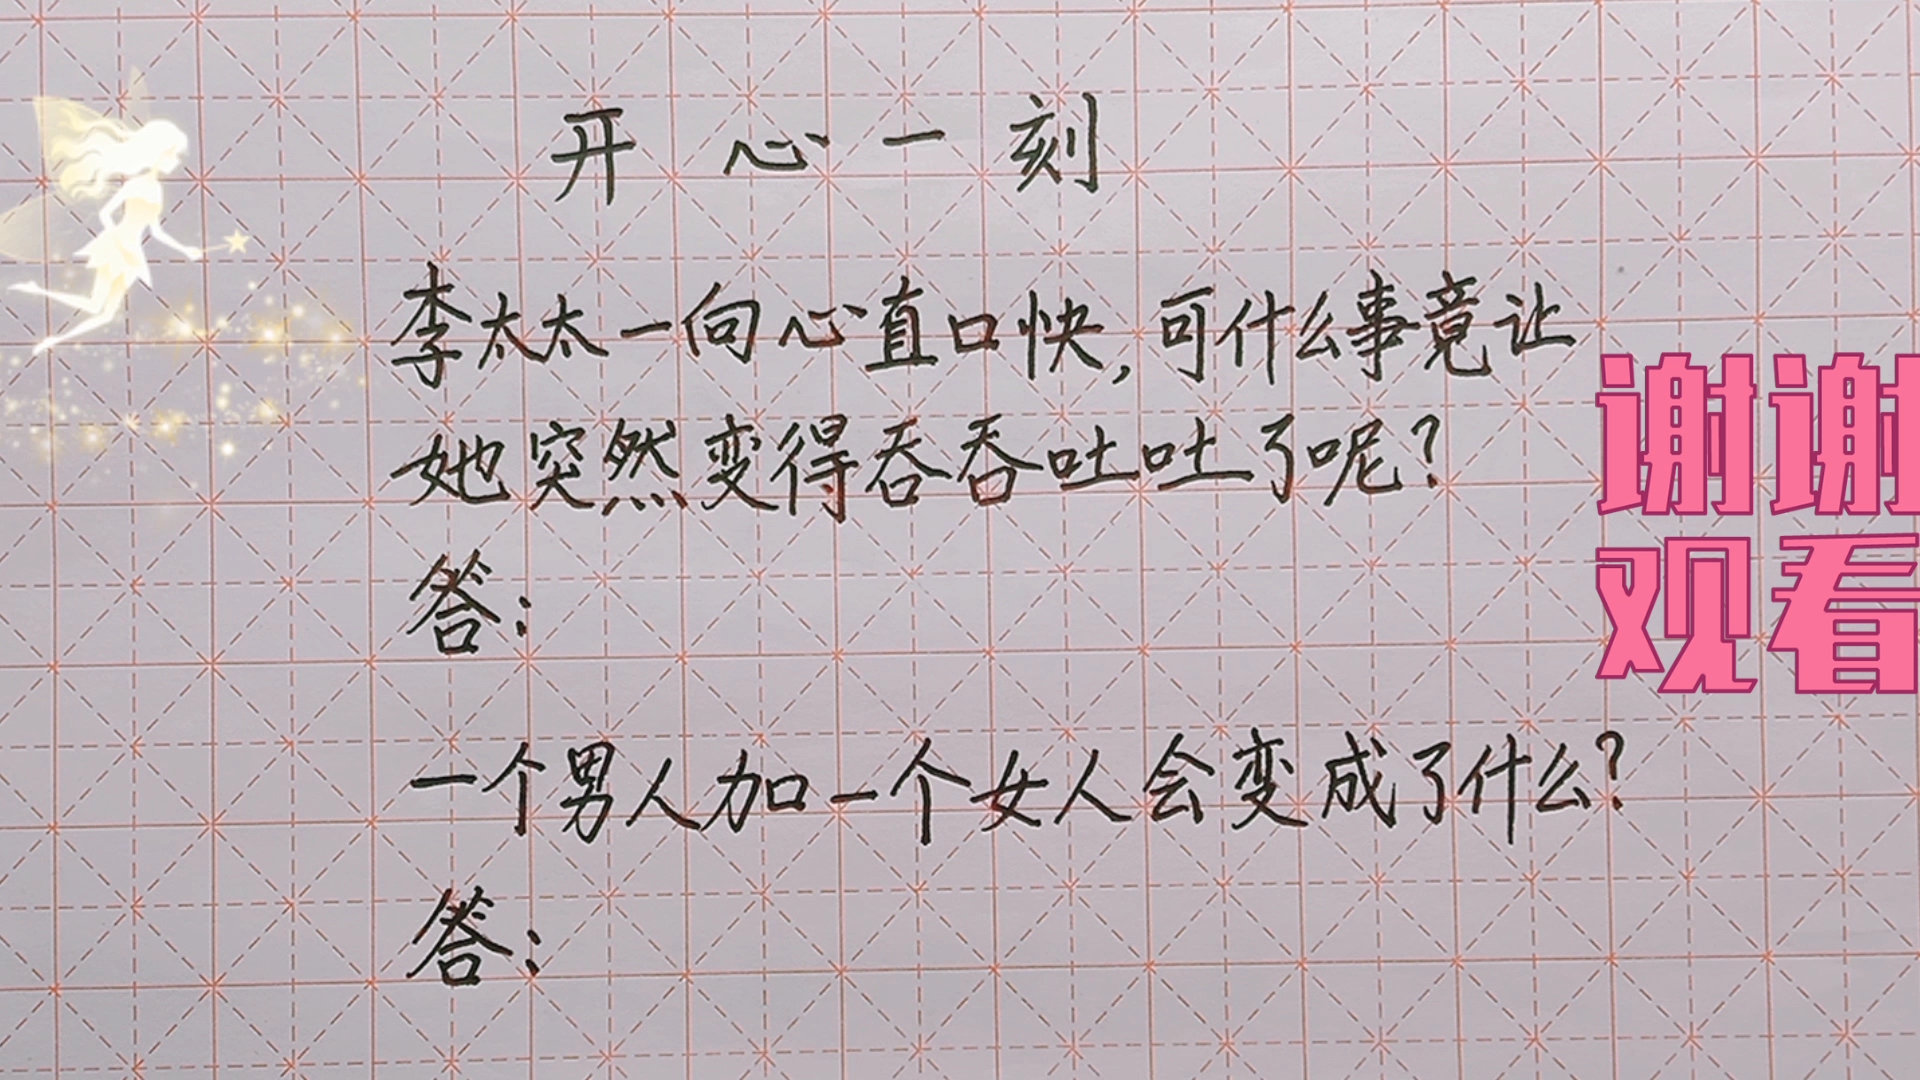 开心一刻
李太太一向心直口快,可什么事竟让
她突然变得吞吞吐吐了呢?
答:
一个男人加一个女人会变成了什么?
答:
谢谢
观看